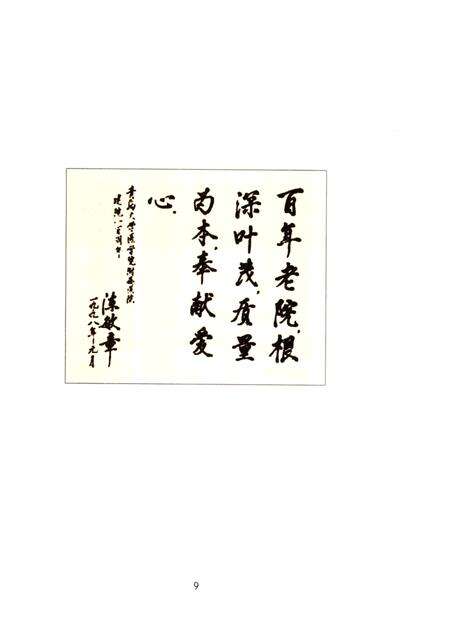 百年老院,根
深叶茂,质量
为本,奉献爱
心。
青岛大学医学院附属医院
建院一百周年
陈敏章
一九九八年元月
9